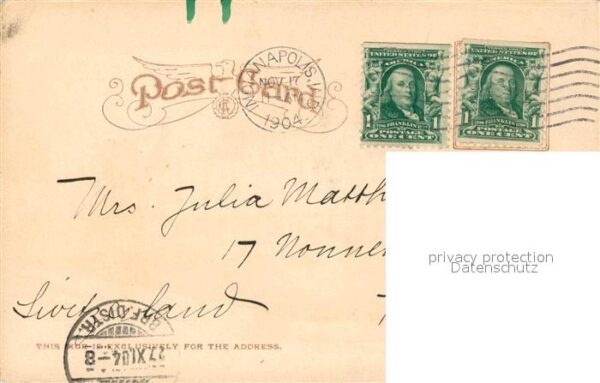 Post Card
INDIANAPOLIS, IND.
NOV 17
1904
UNITED STATES OF
AMERICA
1 1
POSTAGE
ONE CENT
UNITED STATES OF
AMERICA
1 1
POSTAGE
ONE CENT
Mrs. Julia Matth
17 Nonne
privacy protection
Datenschutz
Switzerland
THIS SIDE IS EXCLUSIVELY FOR THE ADDRESS.
BRF. DISTR.
27 XI 04 - 8